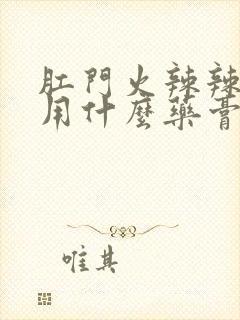 肛門火辣辣
用什麼藥膏
唯其